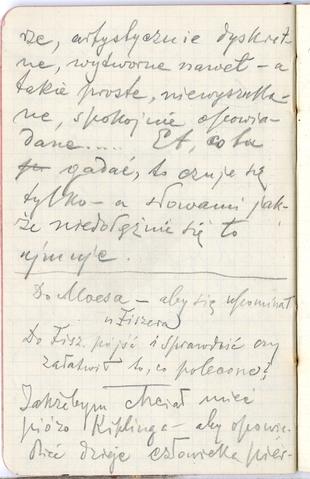 rze, artystycznie dyskret-
ne, wytworne nawet – a
takie proste, niewyszuka-
ne, spokojnie opowia-
dane..... Et, co tu
gadać, to czuje się
tylko – a słowami jak-
że niedołężnie się to
ujmuje.
Do Moesa – aby się upominał
u Fiszera
Do Fisz. pójść i sprawdzić czy
załatwił to, co polecono?
Jakżebym chciał mieć
pióro Kiplinga – aby opowie-
dzieć dzieje człowieka pier-